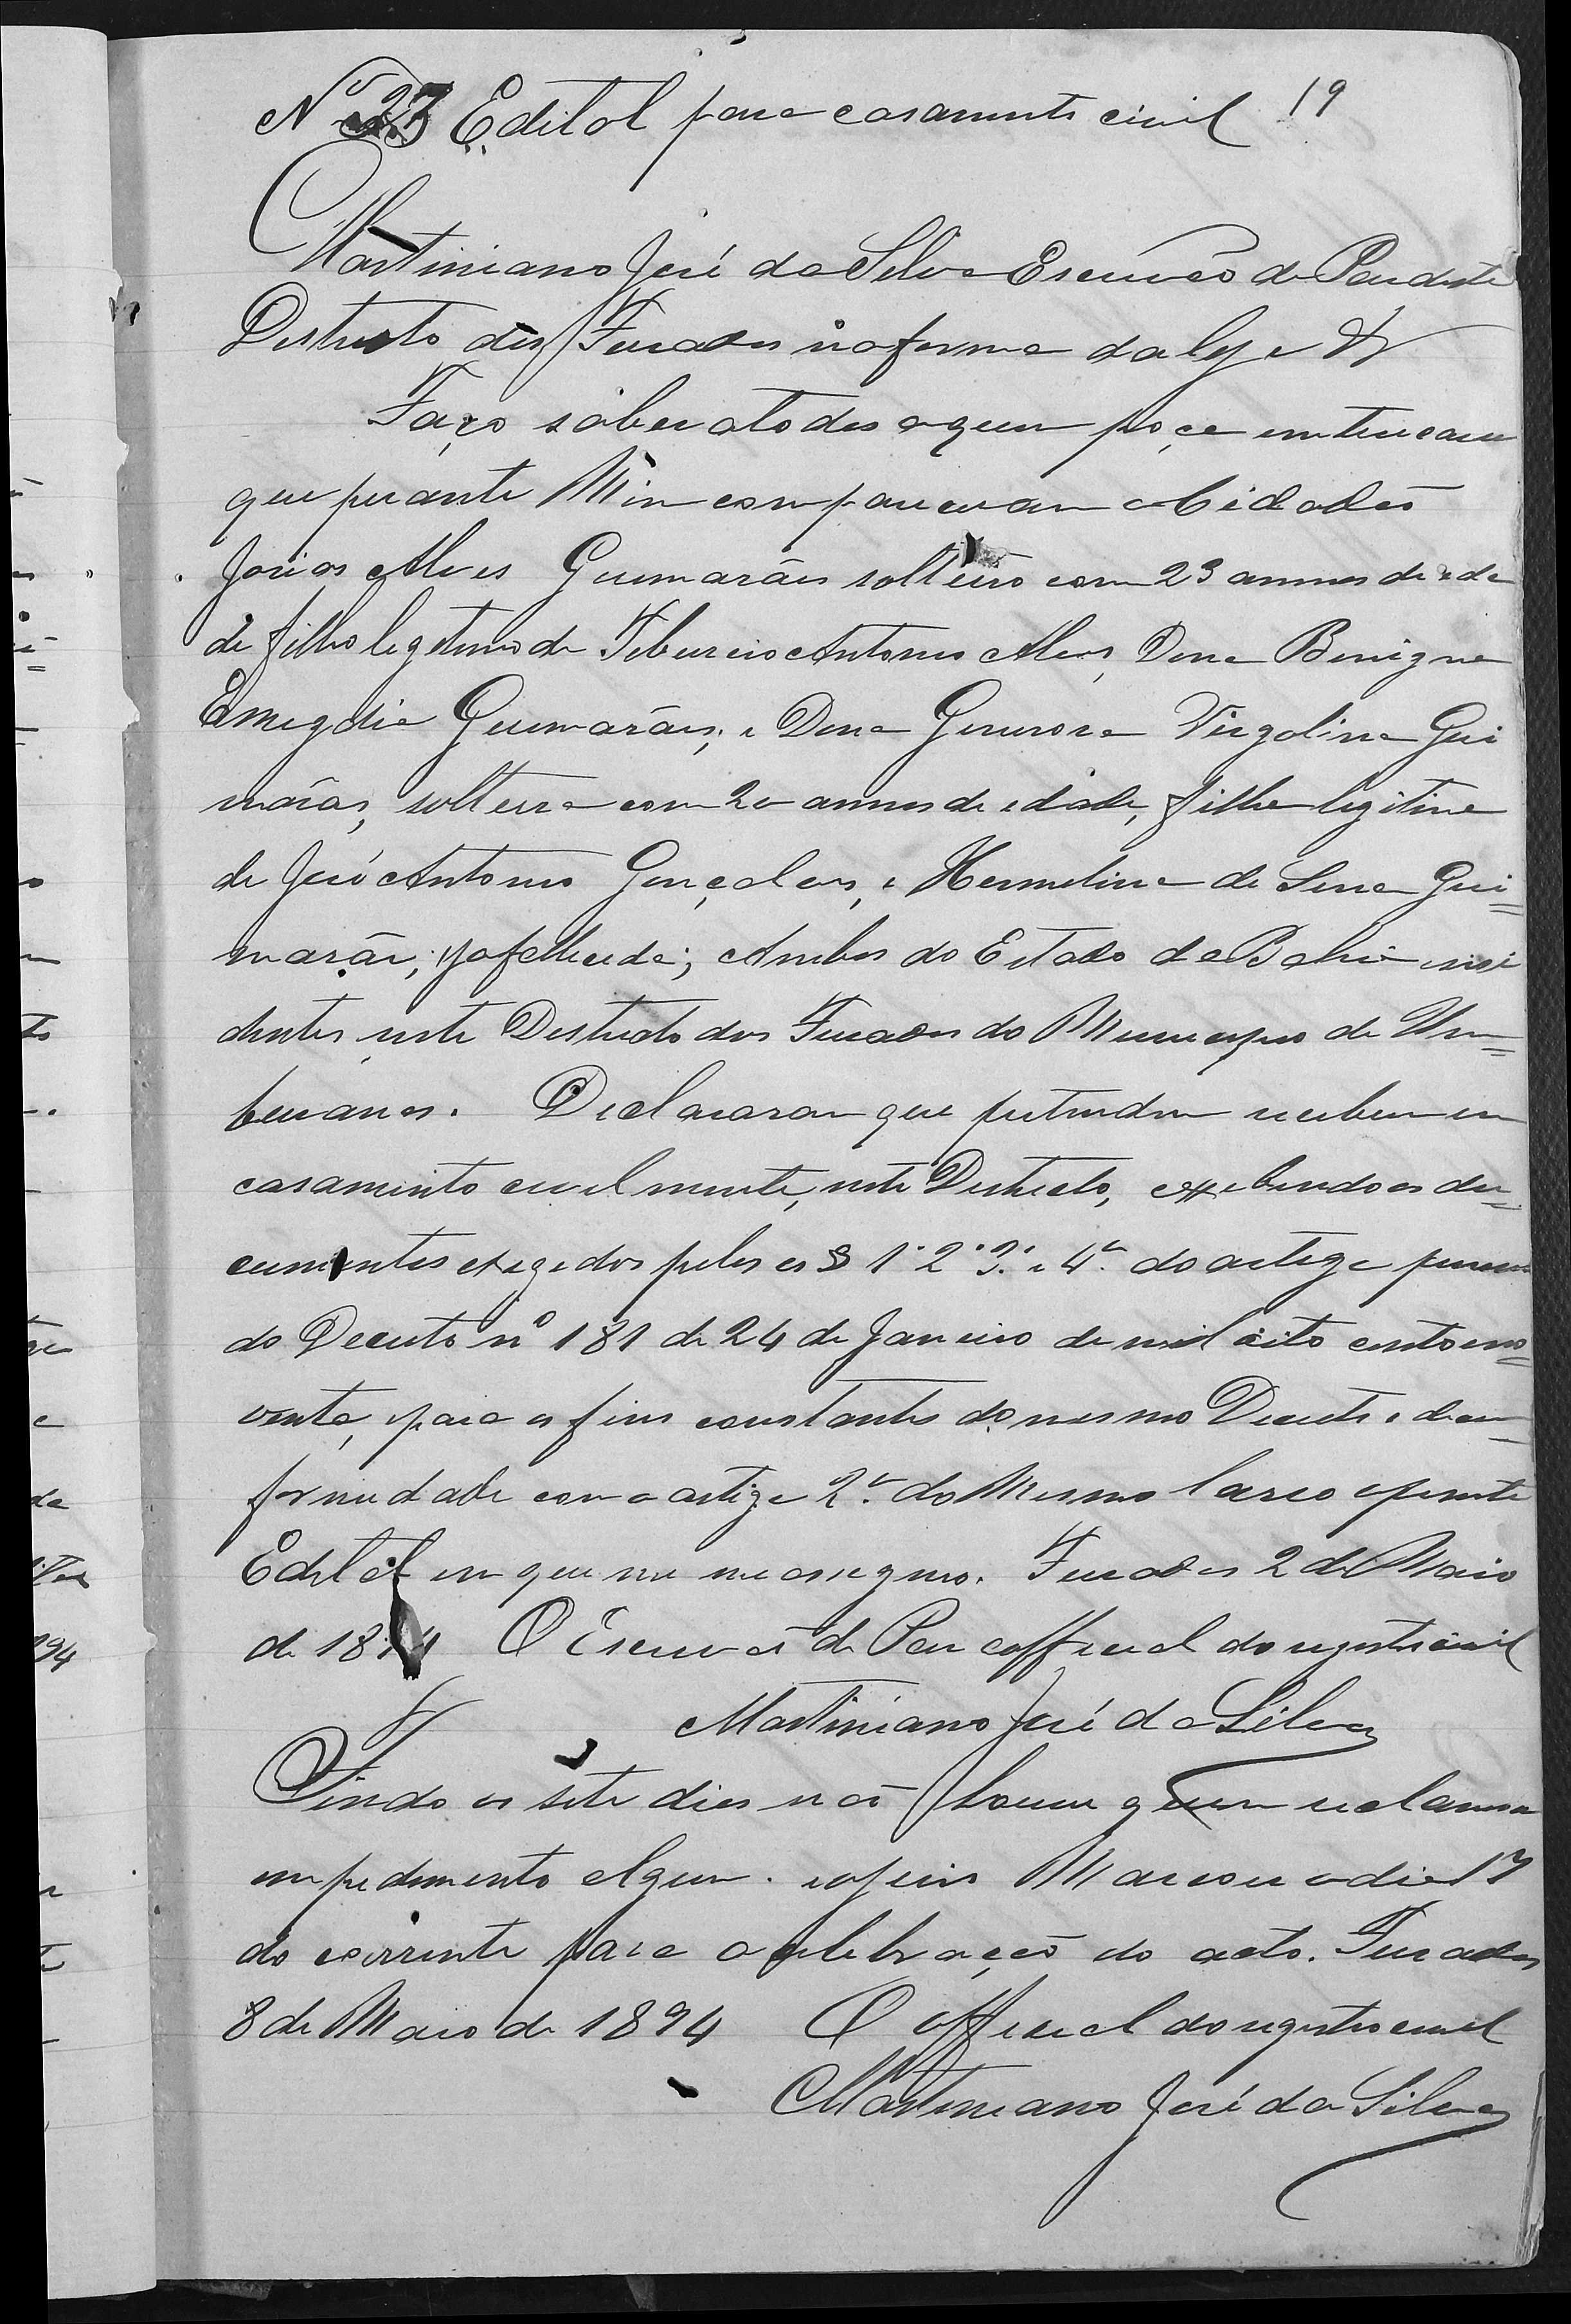 Nº 23 Edital para casamento civil 19
Martiniano José da Silva Escrivão de Paz deste
Destricto dos Furados na forma da ley e &
Faço saber a todos a quem poça enterecar
que perante Mim compareceram o Cidadão
Josias Alves Guimarães solteiro com 23 annos de eda
de filho legetimo de Teburcio Antonio Alves, Dona Benigna
Emegdia Guimarães; e Dona Generosa Virgolina Gui
marães, solteira com 20 annos de idade, filha legitima
de José Antonio Gonçalves, e Hermelina de Sena Gui=
marães, ja fallecida; Ambos do Estado da Bahia resi
dentes neste Destricto dos Furados do Municipio de Um=
buranas. Declararam que pretendem receber em
casamento civilmente, neste Destricto, exebindo os du=
cumentos exegedos pelos os § 1º 2º 3º e 4º do artigo primeiro
do Decreto nº 181 de 24 de Janeiro de mil oito centos no=
venta, para os fins constantes do mesmo Decreto e de con=
formedade com o artigo 2º do Mesmo Lavro o presente
Edital em que me me assegno. Furados 2 de Maio
de 1894 O Escrivão de Paz e official do registro civil
Martiniano José da Silva
Findo os sete dias não houve quem reclamasse
empedemento algum. e depois Marcou o dia 17
do corrente para a celebração do acto. Furados
8 de Maio de 1894 O official do registro civil
Martiniano José da Silva